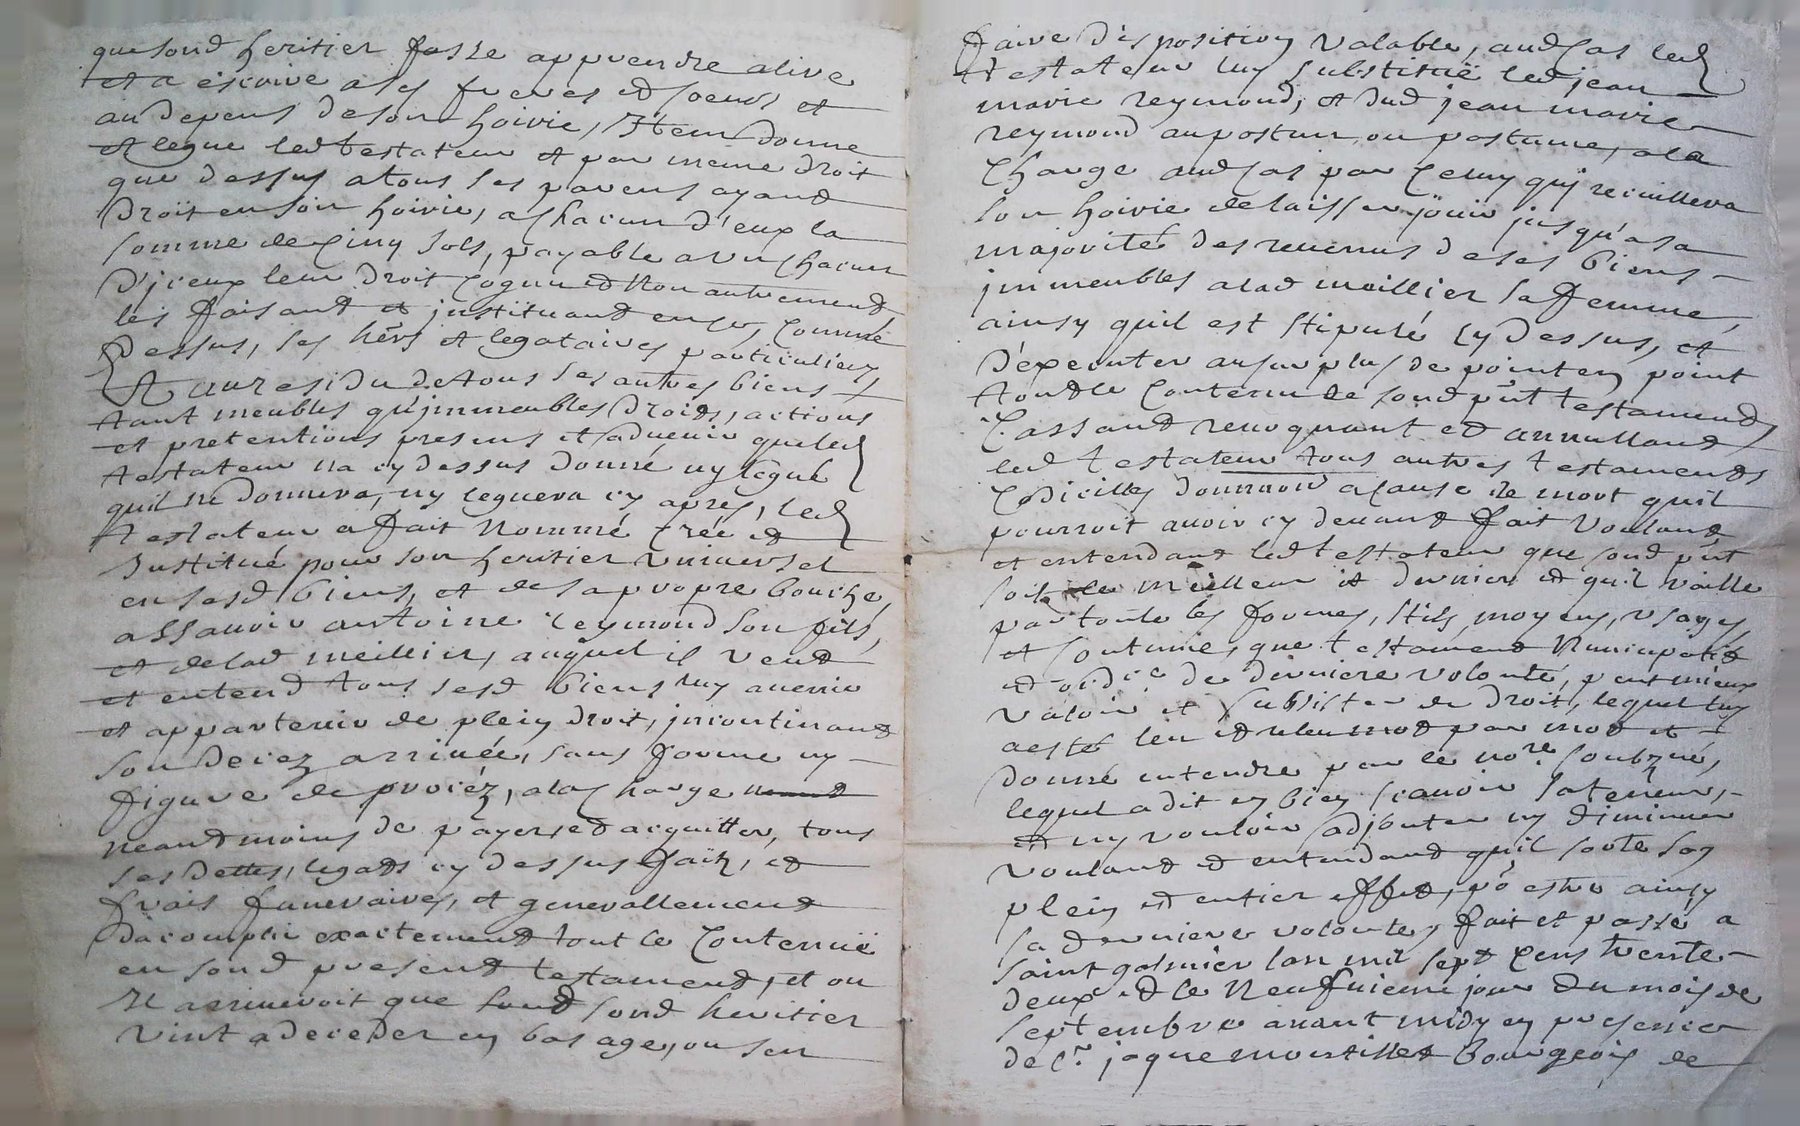 que sond heritier fasse apprendre a lire
et a escrire a ses freres et soeurs et
au depens de son hoirie, Item donne
et legue led testateur et par meme droit
que dessus a tous ses parens ayand
droit en son hoirie, a chacun d'eux la
somme de cinq sols, payable a un chacun
d'iceux leur droit cognu et non autrement
les faisant et instituand en ce, comme
dessus, ses hers et legataires particuliers
Et au residu de tous ses autres biens
tant meubles qu'immeubles droits, actions
et pretentions presens et aduenir que led
testateur na cy dessus donné ny legué
quil ne donnera, ny leguera cy apres, led
testateur a fait nommé créé et
Institué pour son heritier universel
en sesd biens, et de sa propre bouche,
assauoir antoine reymond son fils,
et de lad meillier, auquel il veud
et entend tous sesd biens luy auenir
et appartenir de plein droit, incontinand
son decez arriuée, sans forme ny
figure de procéz, a la charge
neandmoins de payer et acquitter, tous
ses dettes, legats cy dessus faits, et
frais funeraires, et generallement
dacomplir exactement tout le contenuë
en sond present testament, et ou
Il arriueroit que sond heritier
vint a deceder en bas age, ou sen
faire disposition valable, aud cas led
testateur luy substituë led jean
marie reymond, et dud jean marie
reymond au postum ou postume, a la
charge aud cas par celuy qui recuillera
son hoirie de laisser joüir jusqu'a sa
majorité des reuenus de ses biens
immeubles a lad meillier sa femme,
ainsy quil est stipulé cy dessus, et
d'executer au surplus de point en point
tout le contenu de sond pnt testament
Cassand reuoquant et annulland
led testateur tous autres testaments
Codicilles donnaõns a cause de mort quil
pourroit auoir cy deuant fait voulant
et entendant led testateur que sond pnt
soit le meilleur et dernier et quil vaille
par toute les formes, stils, moyens, usages
et coutume, que testament Nuncupatif
et ordre de derniere volonté, peut mieux
valoir et subsister de droit, lequel luy
a esté leu et releu mot par mot et
donné entendre par le nore soubzné,
lequel a dit cy bien scauoir sa teneur,
et ny vouloir adjouter ny diminuer
voulant et entendant quil sorte son
plein et entier effet, po estre ainsy
sa derniere volonté, fait et passé a
saint galmier lan mil sept cens trente
deux et le neufuieme jour du mois de
septembre auant midy en presence
de sr. jaque montillet bourgeois de